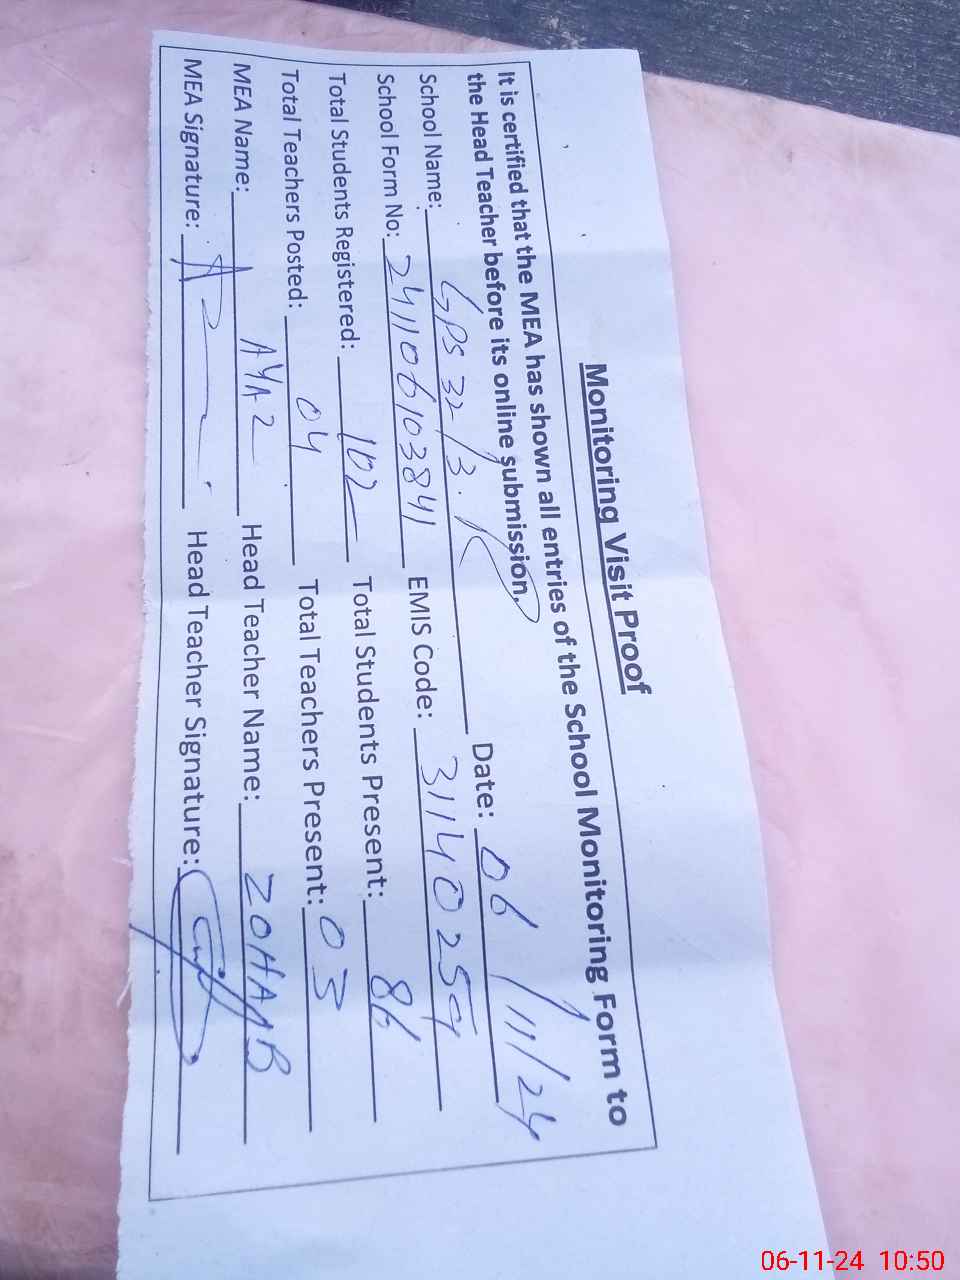 Monitoring Visit Proof
It is certified that the MEA has shown all entries of the School Monitoring Form to
the Head Teacher before its online submission.
School Name: GPS 32/3.R Date: 06/11/24
School Form No: 241106103841 EMIS Code: 31140254
Total Students Registered: 102 Total Students Present: 86
Total Teachers Posted: 04 Total Teachers Present: 03
MEA Name: Head Teacher Name: ZOHAAB
MEA Signature: Head Teacher Signature:
06-11-24 10:50